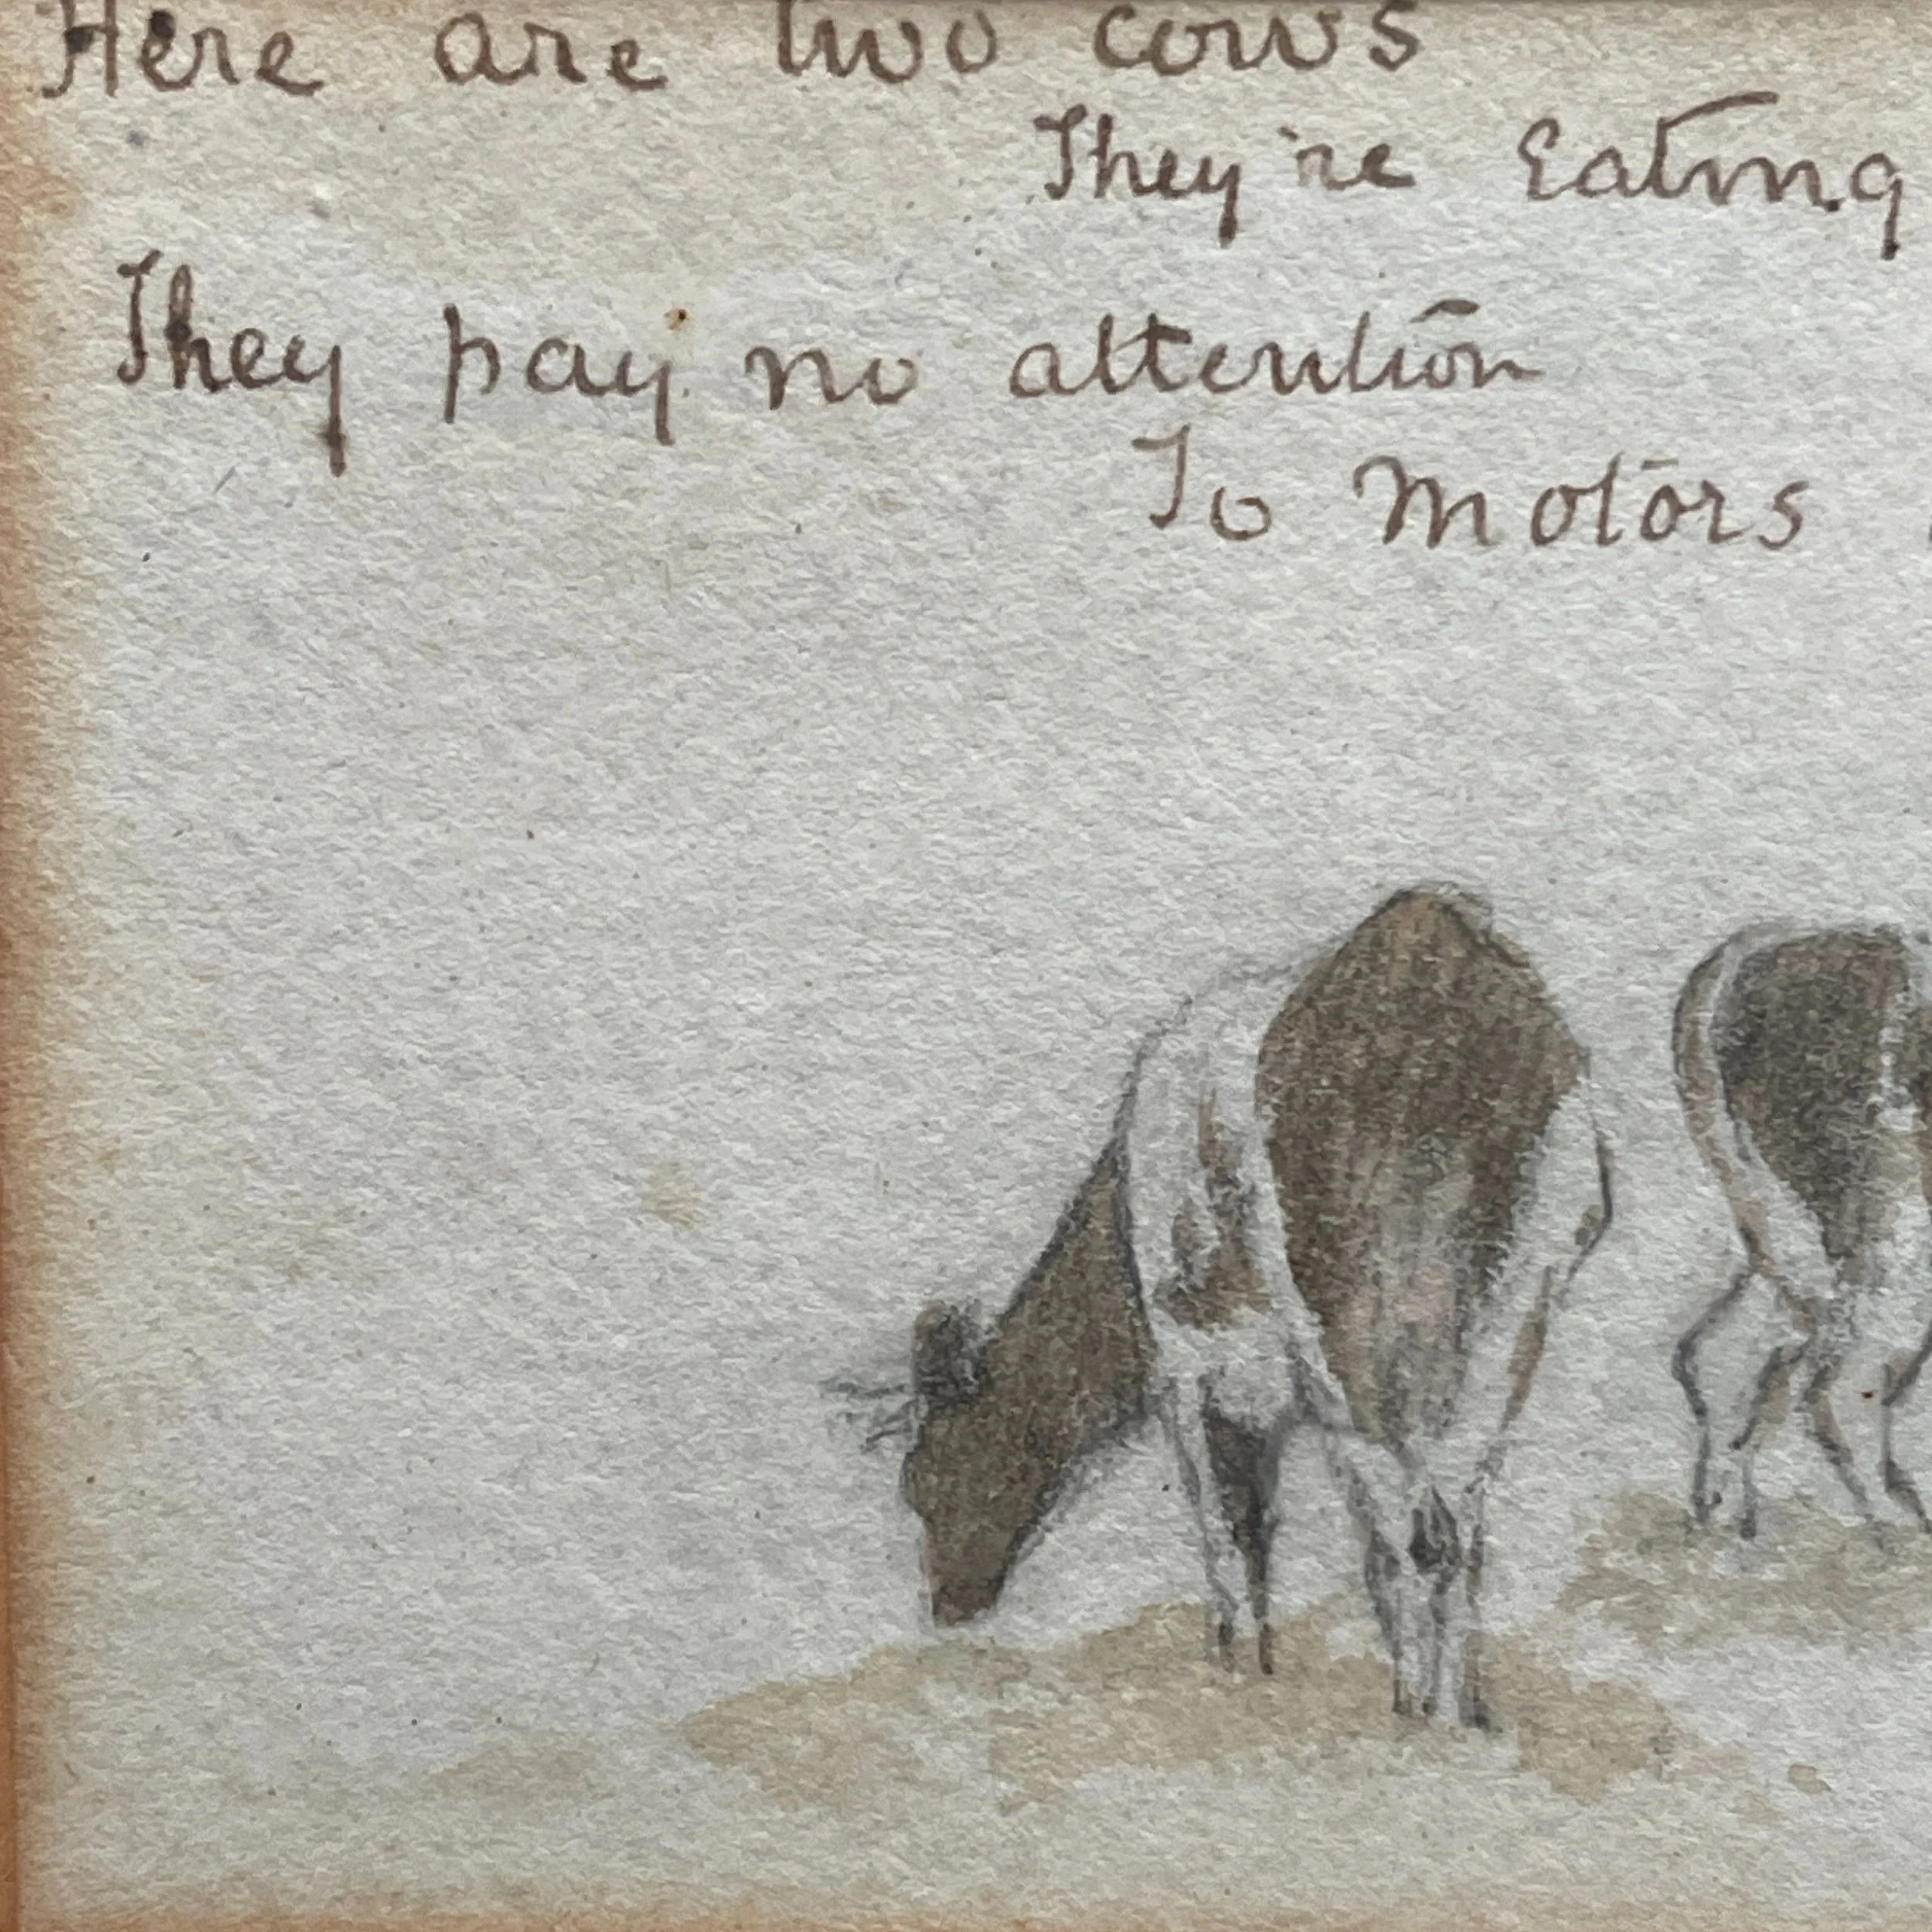 Here are two cows
They're Eating
They pay no attention
To Motors